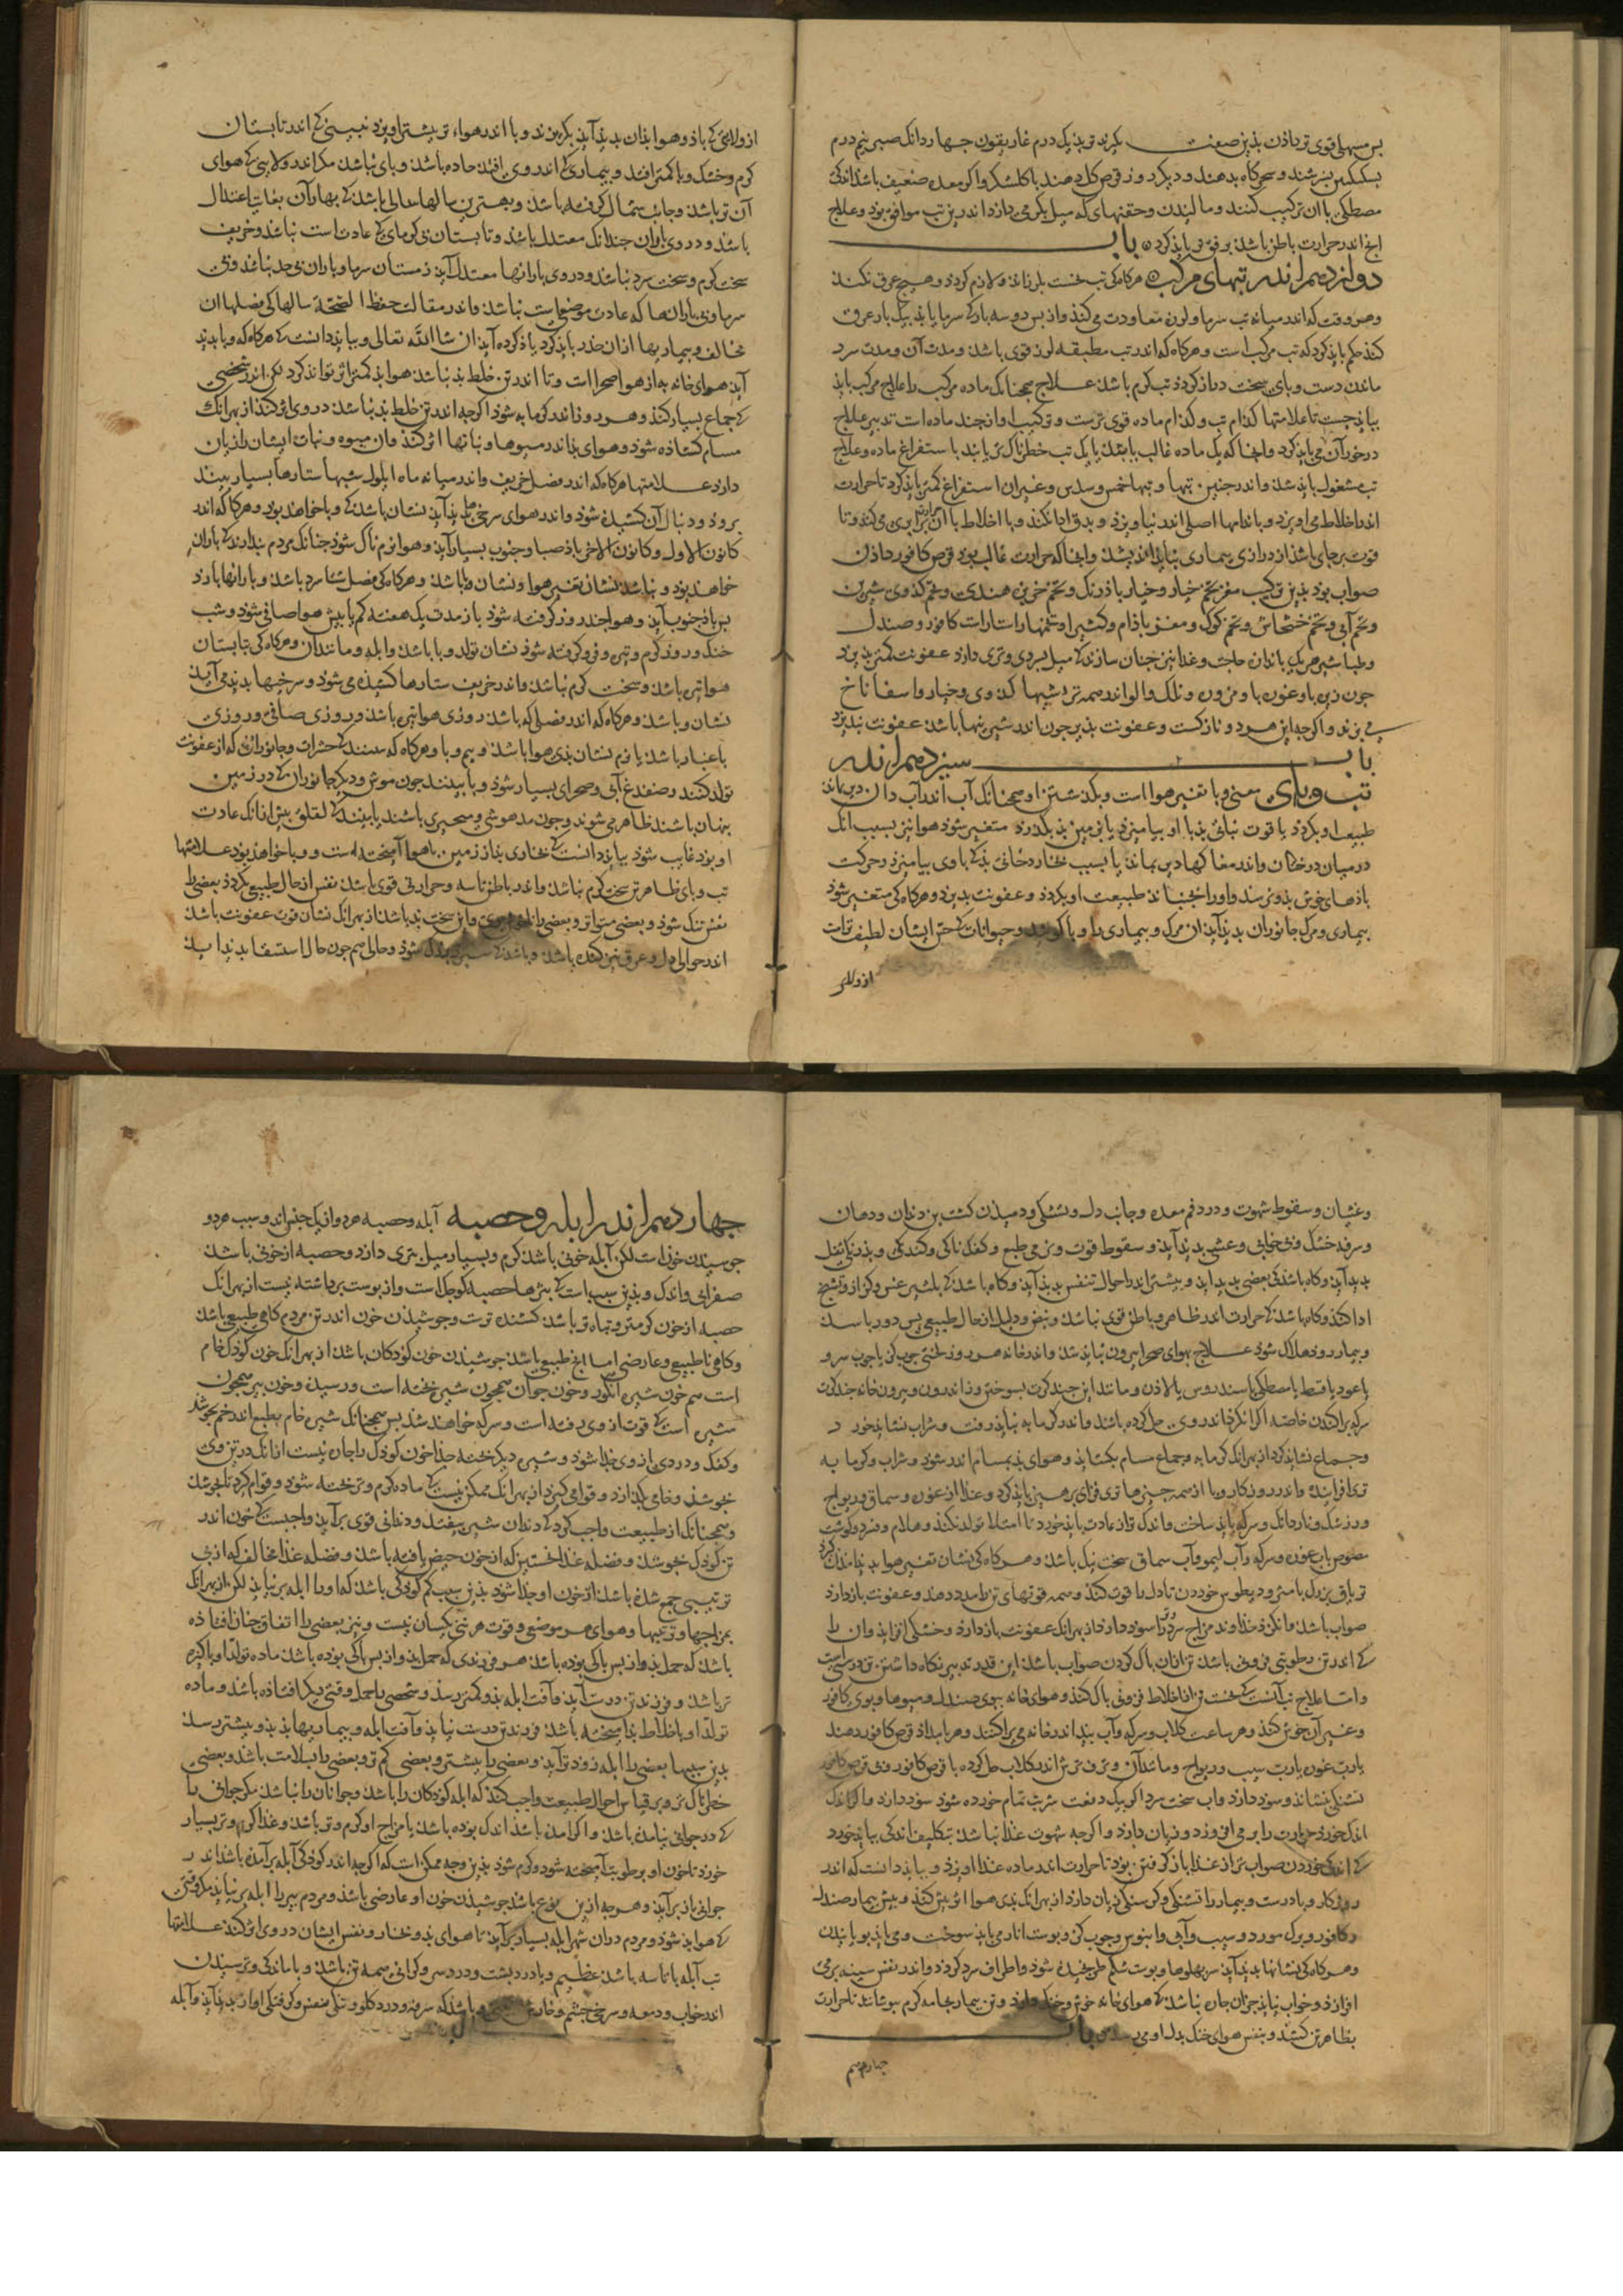 بس مسهلی قوی تر داذن بذین صفت بکیرند تربذ یک درم غاریقون جهار دانک صبر نیم درم
بسکنکبین بسرشند و سحرکاه بدهند و دیکر روز قرص کل دهند با کلشکر و اکر معده ضعیف باشذ اندکی
مصطکی با ان ترکیب کنند و مالیدن و حقنهای که میل بکرمی دارد اندرین تب موافق بوذ و علاج
انج اندر حرارت باطن باشذ برفق می بایذ کرد باب
دوازدهم اندر تبهای مرکب هرکاه کی تب نخست بلرزاند و لازم کردذ و هیچ عرق نکند
و هر وقت که اندر میانه تب سرما و لرزه معاودت می کنذ و از بس دو سه بار کی سرما یابذ بیک بار عرق
کنذ حکم بایذ کرد که تب مرکب است و هرکاه که اندر تب مطبقه لرز قوی باشذ و مدت آن و مدت سرد
ماندن دست و بای سخت دراز کردذ تب کرم باشذ علاج همجنانک ماده مرکب را علاج مرکب بایذ
ببایذ جست تا علامتها کذام تب و کذام ماده قوی ترست و ترکیب او از جند ماده است تدبیر علاج
درخور آن می بایذ کرد و انجا که یک ماده غالب باشذ یا یک تب خطرناک تر یابند باستفراغ ماده و علاج
تب مشغول بایذ شذ و اندر جنین تبها و تبها خمس و سدس و غیر ان استفراغ کمتر بایذ کرد تا حرارت
اندر اخلاط می اویزد و باندامها اصلی اندر نیاویزد و بدق ادا نکنذ و با اخلاط با آن حرارت برابری می کند و تا
قوت برجای باشذ از درازی بیماری نبایذ اندیشذ و انجا که حرارت غالب بوذ قرص کافور داذن
صواب بوذ بذین ترکیب مغز تخم خیار و خیار باذرنک و تخم خربزه هندی و تخم کذوی شیرین
و تخم آبی و تخم خشخاش و تخم کوک و مغز باذام و کثیرا و تخمها را ستارات کافور و صندل
و طباشیر هر یک باندازه حاجت و غذا نیز جنان سازند که میل بسردی و تری دارد عفونت کمتر بذیرد
جون زیره با و غوره با و مزوره و نلک و الو اندر همه ترشیها کذوی و خیار و اسفاناخ
می بزند و اکرجه این هر دو نازکست و عفونت بذیر جون اندر شیرینیها باشذ عفونت نبذیرد
باب سیزدهم اندر
تب وبای معنی وبا تغیر هوا است و بکذشتن او همجنانک آب اندر آب دان دیر بماند
طبیعت او بکردذ یا قوت نباتی بذ با او بیامیزد یا بزمین بذ بکذرد متغیر شوذ هوا نیز بسبب انک
در میان درختان و اندر مغاکها دیر بماند یا بسبب بخار دخانی بذ که با وی بیامیزد و حرکت
باذهای خوش بذو نرسد و او را نجنباند طبیعت او بکردذ و عفونت بذیرد و هرکاه کی متغیر شوذ
بیماری و مرک جانوران بدید آید ان مرک و بیماری را وبا کویند و حیوانات که حس ایشان لطیف ترست
از ولایتی
از ولایتی که باذ و هوا بذان بدید آید بکریزند و وبا اندر هواء تر بیشتر اویزد نبینی که اندر تابستان
کرم و خشک وبا کمتر افتد و بیماری که اندر وی افتد حاده باشذ و وبای نباشذ مکر اندر ولایتی که هوای
آن تر باشذ و جانب شمال کرفته باشذ و بهترین سالها سالی باشذ که بهار آن بغایت اعتدال
باشذ و در وی باران جندانک معتدل باشذ و تابستان بی کرمای که عادت است نباشذ و خریف
سخت کرم و سخت سرد نباشذ و در وی بارانها معتدل آید زمستان سرما و باران بی حد نباشذ و بی
سرما و بی بارانها که عادت موضع است نباشذ و اندر مقالت حفظ الصحة سالها کی فصلها ان
مخالف و بیماریها از ان حذر باید کرد یاذ کرده آید ان شا الله تعالی و ببایذ دانست که هرکاه که وبا بدید
آید هوای خانه به از هوا صحرا است و تا اندر تن خلط بذ نباشذ هوا بذ کمتر اثر تواند کرد لکن اندر شخصی
که جماع بسیار کند و هر دو زواند کرمابه شوذ اکرجه اندر تن خلط بذ نباشذ در وی اثر کند از بهر انک
مسام کشاذه شوذ و هوای بذ اندر میوها و نباتها اثر کند و ان میوه و نبات ایشان را زیان
دارد علامتها هرکاه که اندر فصل خریف و اندر میانه ماه ایلول شبها ستارها بسیار بینند
برود و دنبال آن کشیده شوذ و اندر هوای سرخی بدید آید نشان باشذ که وبا خواهد بوذ و هرکاه که اندر
کانون الاول و کانون الاخر باذ صبا و جنوب بسیار آید و هوا نزم ناک شوذ جنانک مردم بندارند که باران
خواهد بوذ و نباشذ نشان تغیر هوا و نشان وبا باشذ و هرکاه کی فصل شتا سرد باشذ و بارانها بارد
بس باذ جنوب آید و هوا جند روز کرفته شوذ باز مدت یک هفته کم یا بیش هوا صافی شوذ و شب
خنک و روز کرم و تیره و فرو کرفته شوذ نشان تولد وبا باشذ و ابله و مانند ان و هرکاه کی تابستان
هوا تیره باشذ و سخت کرم نباشذ و اندر خریف ستارها کشیده می شوذ و سرخیها بدید می آید
نشان وبا باشذ و هرکاه که اندر فصلی که باشذ روزی هوا تیره باشذ و روزی صافی و روزی
با غبار باشذ یا نزم نشان بذی هوا باشذ و بیم وبا و هرکاه که بینند که حشرات و جانوران که از عفونت
تولد کنند و ضفدع آبی و صحرای بسیار شوذ و یا ببینند جون موش و دیکر جانوران که در زمین
بنهان باشند ظاهر می شوند و جون مدهوشی و متحیری باشند یا بینند که لقلق بیش از انک عادت
او بوذ غایب شوذ ببایذ دانست که بخاری بذ از زمین با هوا آمیخته است و وبا خواهد بوذ علامتها
تب وبای ظاهر تن سخت کرم نباشذ و اندر باطن تاسه و حرارتی قوی باشذ نفس از حال طبیعی بکردذ بعضی را
نفس تنک شوذ و بعضی متواتر و بعضی را و این سخت بذ باشذ از بهر انک نشان قوت عفونت باشذ
اندر حوالی دل و عرق نیز کنده باشذ و باشذ که سبرز بزرک شوذ و حالی هم جون حال استسقا بدید آید
وغثیان و سقوط شهوت و درد فم معده و جانب دل و تشنکی و دمیدن کشت بن دندان و دهان
و سرفه خشک و بی خوابی و غشی بدید آید و سقوط قوت و نرمی طبع و کفک ناکی و کندکی و بذ رنکی ثفل
بدید آید و کاه باشذ کی بعضی بدید اید و بیشتر اندر احوال تنفس بدید آید و کاه باشذ که بلثیرغس و کزاز و تشنج
ادا کند و کاه باشذ که حرارت اندر ظاهر و باطن قوی نباشذ و نبض و دلیل از حال طبیعی بس دور باشذ
و بیمار زود هلاک شوذ علاج بهوای صحرا بیرون نبایذ شذ و اندر خانه هر روز لختی جوب کز یا جوب سرو
یا عود یا قسط یا مصطکی یا سندروس یا لاذن و مانند این جند کرت بسوختن و اندرون و بیرون خانه جند کرت
سرکه براکندن خاصه اکر انکزد اندر وی حل کرده باشند و اندر کرمابه نبایذ رفت و شراب نشاید خورد
و جماع نشاید کرد از بهر انک کرمابه و جماع مسام بکشاید و هوای بذ بمسام اندر شوذ و شراب و کرمابه
تری افزایند و اندر روزکار وبا از همه جیزها تری فزای برهیز بایذ کرد و غذا از غوره و سماق و ریواج
و زرشک و ناردانک و سرکه بایذ ساخت و اندک تر از عادت باید خورد تا امتلا تولد نکند و هلام و قریص و کوشت
مصوص باب غوره و سرکه و آب لیمو و آب سماق سخت نیک باشذ و هرکاه کی نشان تغیر هوا بدید آمد بایذ کرد
تریاق بزرک یا مثرودیطوس خوردن تا دل را قوت کند و همه قوتهای تن را مدد دهد و عفونت بازدارد
صواب باشذ و انکزد خداوند مزاج سردتر را سوذ دارد از بهر انک عفونت بازدارد و خشکی افزاید و ان را
که اندر تن رطوبتی فزونی باشذ تن از ان باک کردن صواب باشذ این قدر تدبیر نکاه داشتن تن درستی است
و اما علاج تب آنست که نخست تن از اخلاط فزونی باک کنند و هوای خانه ببوی صندل و میوها و بوی کافور
و غیر آن خوش کنند و هر ساعت کلاب و سرکه و آب بید اندر خانه می براکنند و هر بامداد قرص کافور دهند
یا رب غوره یا رب سیب و ریواج و مانند آن و ترف ترش اندر کلاب حل کرده با قرص کافور و بی قرص کافور
تشنکی بنشاند و سوذ دارد و اب سخت سرد اکر بیک دفعت شربت تمام خورده شوذ سوذ دارد و اکر اندک
اندک خورد حرارت را برمی افروزد و زیان دارد و اکرجه شهوت غذا نباشذ بتکلیف اندکی بباید خورد
که اندکی خوردن صواب تر از غذا باز کرفتن بوذ تا حرارت اندر ماده غذا اویزد و ببایذ دانست که اندر
روزکار وبا درست و بیمار را تشنکی و کرسنکی زیان دارد از بهر انک بذی هوا اثر بیش کند و بیش بیمار صندل
و کافور و برک مورد و سیب و آبی و ابنوس و جوب کز و بوست انار می باید سوخت و می باید بویانیدن
و هرکاه کی نشانها بدید آید سر بهلوها و بوست شکم طرنجیده شوذ و اطراف سرد کردذ و اندر نفس سینه برمی
افرازد و خواب نیاید جز ان جاره نباشذ که هوای خانه خوش و خنک دارند و تن بیمار بجامه کرم بپوشانند تا حرارت
بظاهر تن کشد و بنفس هوای خنک بدل او می رسد باب
جهاردهم
جهاردهم اندر ابله و حصبه آبله و حصبه هر دو از یک جنس اند و سبب هر دو
جوشیدن خون است لکن آبله خونی باشذ کرم و بسیار میل بتری دارد و حصبه از خونی باشذ
صفرایی و اندک و بذین سبب است که بثرها حصبه کوجک است و از بوست برداشته نیست از بهر انک
حصبه از خون کرمتر و تباه تر باشذ کشنده ترست و جوشیدن خون اندر تن مردم کاهی طبیعی باشذ
و کاهی ناطبیعی و عارضی اما انج طبیعی باشذ جوشیدن خون کوذکان باشذ از بهر انک خون کوذک خام
است هم جون شیره انکور و خون جوان همجون شیره بخته است و رسیده و خون بیر همجون
شیره است که قوت از وی رفته است و سرکه خواهد شذ بس همجنانک شیره خام بطبع اندر خم بجوشد
و کفک و دردی از وی جذا شوذ و شیره دیکر بخته جذا خون کوذک را جاره نیست از انک در تن وی
بجوشد و خامی بکذارد و قوامی کیرد از بهر انک ممکن نیست که ماده کرم و تر بخته شوذ و قوام کیرد تا نجوشد
و همجنانک از طبیعت واجب کرد که دندان شیر بیفتد و دندانی قوی برآید واجبست که خون اندر
تن کوذک بجوشد و فضله غذا نخستین که از خون حیض یافته باشذ و فضله غذا مخالف که از بی
ترتیبی جمع شده باشذ از خون او جذا شوذ بذین سبب کم کوذکی باشذ که او را ابله برنیاید لکن از بهر انک
بمزاجها و ترتیبها و هوای هر موضعی و قوت هر تنی یکسان نیست و نیز بعضی را اتفاق جنان افتاده
باشذ که حمل بذو از بس باکی بوده باشذ هر فرزندی که حمل بذو از بس باکی بوده باشذ ماده تولد او باکیزه
تر باشذ و فرزند تن درست آید و آفت ابله بذو کمتر رسد و شخصی را حمل وقتی دیکر افتاده باشذ و ماده
تولد او با اخلاط بذ آمیخته باشذ فرزند تن درست نیاید و آفت ابله و بیماریها بذ بذو بیشتر رسد
بدین سببها بعضی را ابله زودتر آید و بعضی را بیشتر و بعضی کم تر و بعضی را بسلامت باشذ و بعضی
خطرناک تر و بر قیاس احوال طبیعت واجب کند که ابله کوذکان را باشذ و جوانان را نباشذ مکر جوانی را
که در جوانی نیامده باشذ و اکر امده باشذ اندک بوده باشذ یا مزاج او کرم و تر باشذ و غذا کرم و تر بسیار
خورد تا خون او برطوبت آمیخته شوذ و کرم شوذ بذین وجه ممکن است که اکرجه اندر کوذکی آبله برآمده باشذ اندر
جوانی باز برآید و هرجه ازین نوع باشذ جوشیدن خون او عارضی باشذ و مردم بیر را ابله برنیاید مکر وقتی
که هوا بذ شوذ و مردم در ان شهر ابله بسیار برآید تا هوای بذ و بخار و نفس ایشان در وی اثر کند علامتها
تب آبله با تاسه باشذ عظیم و با درد بشت و درد سر و کرانی همه تن باشذ و با ماندکی و ترسیدن
اندر خواب و دمعه و سرخی جشم و خارش و باشذ که سرفه و درد کلو و تنکی نفس و کرفتکی اواز بدید آید و آبله